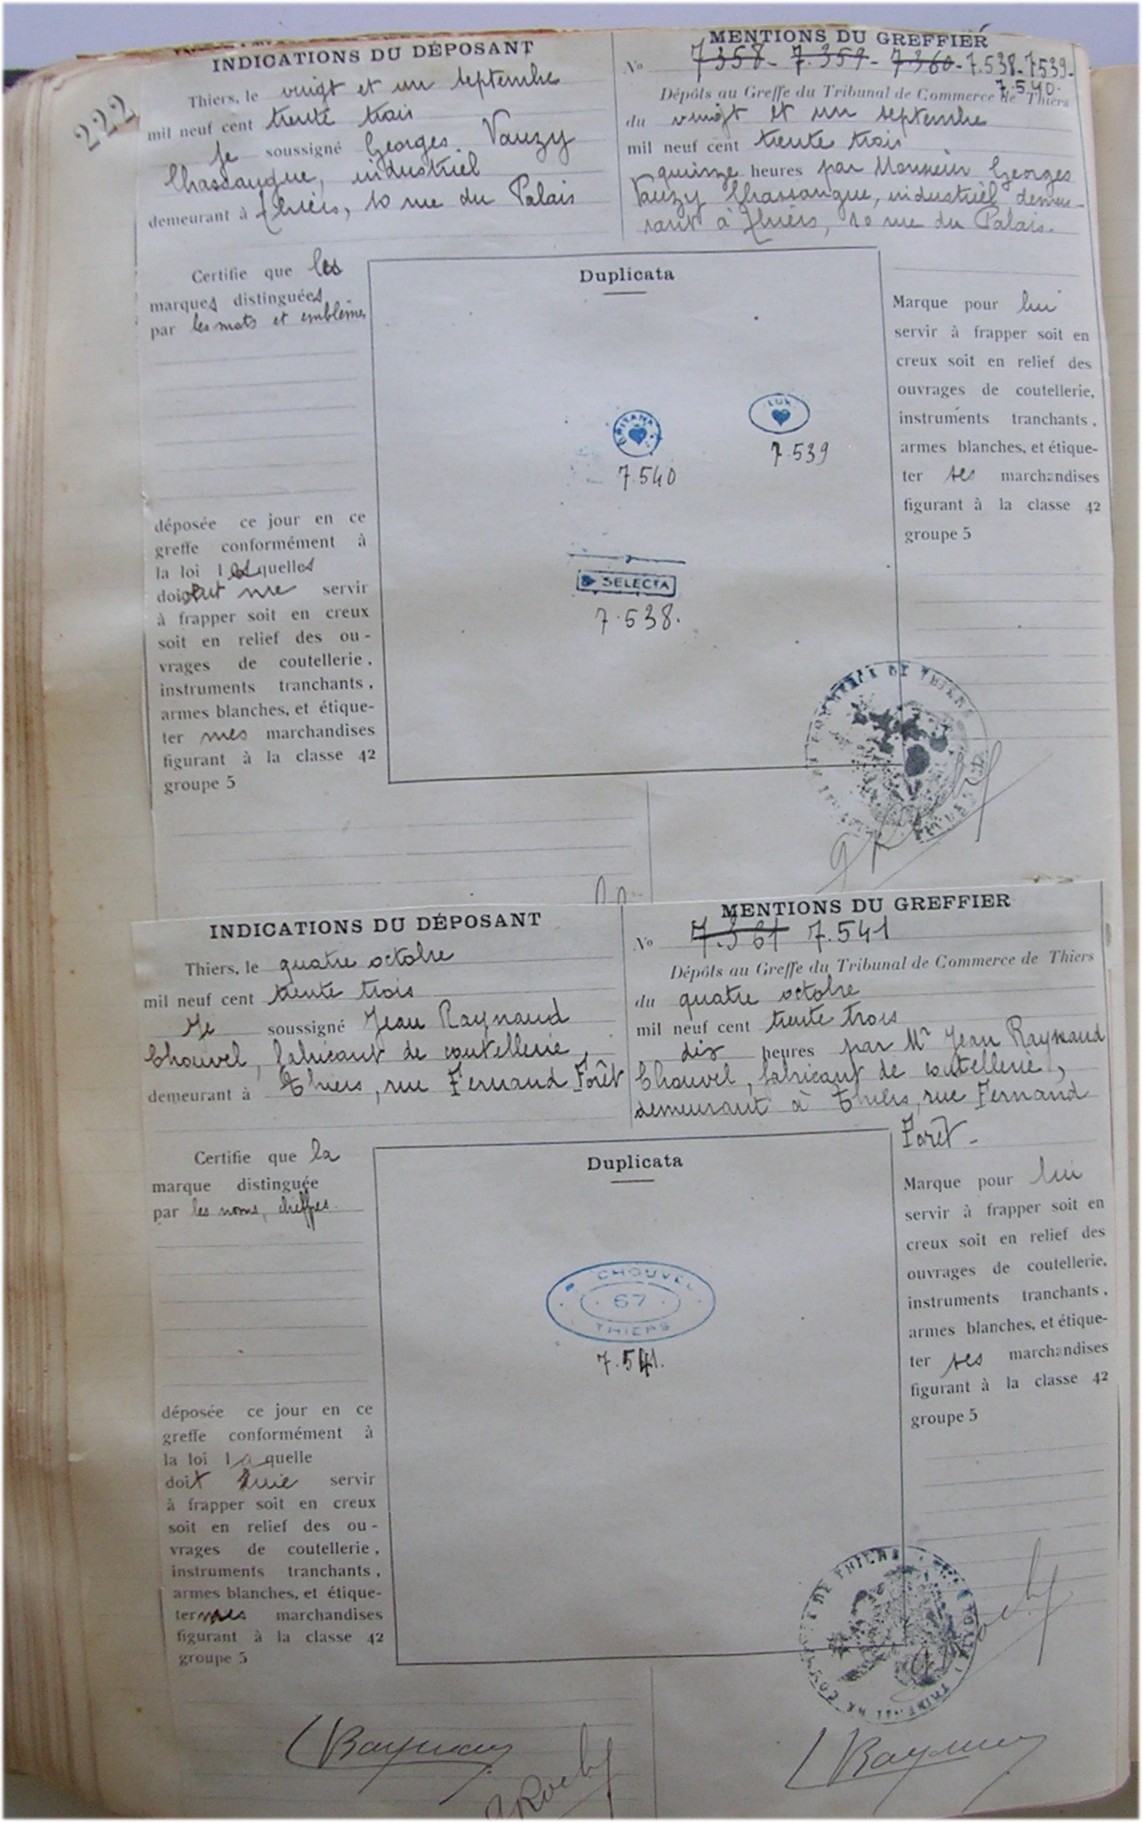 222
INDICATIONS DU DÉPOSANT
Thiers, le vingt et un septembre
mil neuf cent trente trois
Je soussigné Georges Vauzy
Chassangue, industriel
demeurant à Thiers, 10 rue du Palais
MENTIONS DU GREFFIER
No 7358 - 7.359 - 7.360 - 7.538 - 7539 -
7.540.
Dépôts au Greffe du Tribunal de Commerce de Thiers
du vingt et un septembre
mil neuf cent trente trois
quinze heures par Monsieur Georges
Vauzy Chassangue, industriel demeu-
rant à Thiers, 10 rue du Palais.
Certifie que les
marques distinguées
par les mots et emblèmes
déposée ce jour en ce
greffe conformément à
la loi lesquelles
doivent me servir
à frapper soit en creux
soit en relief des ou-
vrages de coutellerie,
instruments tranchants,
armes blanches, et étique-
ter mes marchandises
figurant à la classe 42
groupe 5
Duplicata
LUX
7.539
7.540
SELECTA
7.538.
Marque pour lui
servir à frapper soit en
creux soit en relief des
ouvrages de coutellerie,
instruments tranchants,
armes blanches, et étique-
ter ses marchandises
figurant à la classe 42
groupe 5
INDICATIONS DU DÉPOSANT
Thiers, le quatre octobre
mil neuf cent trente trois
Je soussigné Jean Raynaud
Chouvel, fabricant de coutellerie
demeurant à Thiers, rue Fernand Forêt
MENTIONS DU GREFFIER
No 7.361 7.541
Dépôts au Greffe du Tribunal de Commerce de Thiers
du quatre octobre
mil neuf cent trente trois
dix heures par Mr Jean Raynaud
Chouvel, fabricant de coutellerie,
demeurant à Thiers, rue Fernand
Forêt -
Certifie que la
marque distinguée
par les noms, chiffres.
déposée ce jour en ce
greffe conformément à
la loi laquelle
doit servir
à frapper soit en creux
soit en relief des ou-
vrages de coutellerie,
instruments tranchants,
armes blanches, et étique-
ter mes marchandises
figurant à la classe 42
groupe 5
Duplicata
CHOUVEL
67
THIERS
7.541.
Marque pour lui
servir à frapper soit en
creux soit en relief des
ouvrages de coutellerie,
instruments tranchants,
armes blanches, et étique-
ter ses marchandises
figurant à la classe 42
groupe 5
DE THIERS